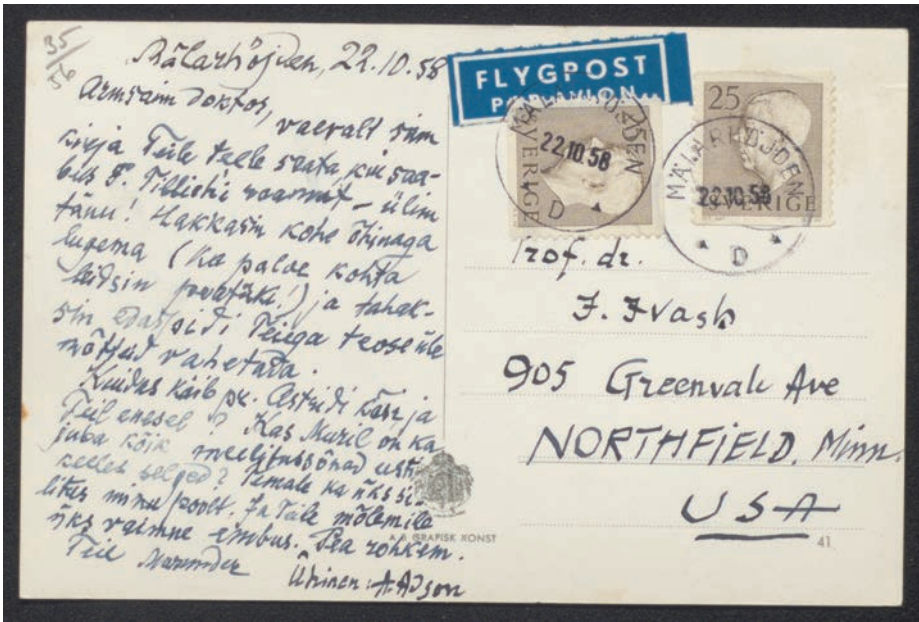 35/56
Mälarhöjden, 22.10.58
Armsaim doktor,
vaevalt sain
kirja Teile teele saata, kui saa-
bus P. Tillichi raamat – ülim
tänu! Hakkasin kohe õhinaga
lugema (ka palve kohta
leidsin peatüki!) ja tahak-
sin edaspidi Teiega teose üle
mõtteid vahetada.
Kuidas käib pr. Astridi käsi ja
Teil enesel? Kas Muril on ka
juba kõik meelitussõnad eesti
keeles selged? Temale ka üks si-
litus minu poolt. Ja Teile mõlemile
üks vaimne embus. Pea rohkem.
Teie
Ühinen: A. Adson
FLYGPOST
PAR AVION
25
SVERIGE
MÄLARHÖJDEN
22.10.58
D
25
SVERIGE
MÄLARHÖJDEN
22.10.58
D
Prof. dr.
I. Ivask
905 Greenvale Ave
NORTHFIELD, Minn.
USA
A B GRAFISK KONST
41